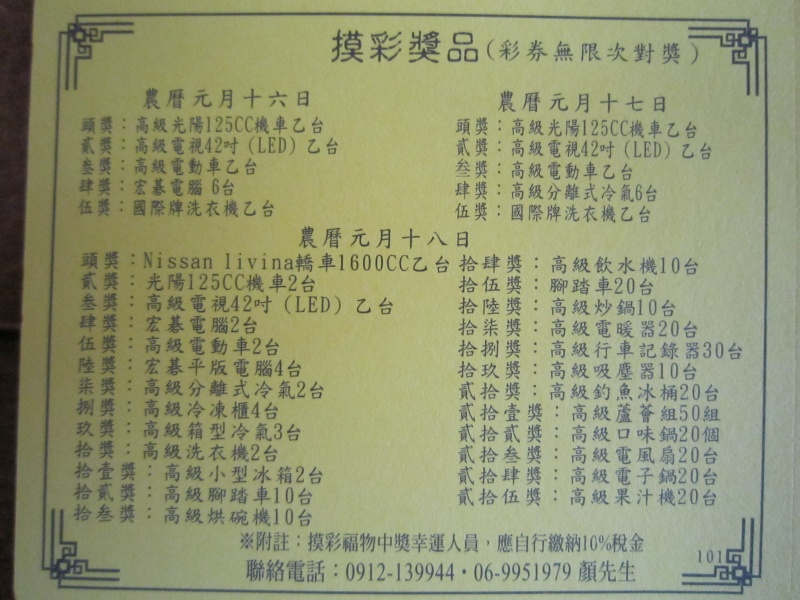 摸彩獎品(彩券無限次對獎)
農曆元月十六日
頭獎：高級光陽125CC機車乙台
貳獎：高級電視42吋(LED)乙台
叁獎：高級電動車乙台
肆獎：宏碁電腦6台
伍獎：國際牌洗衣機乙台
農曆元月十七日
頭獎：高級光陽125CC機車乙台
貳獎：高級電視42吋(LED)乙台
叁獎：高級電動車乙台
肆獎：高級分離式冷氣6台
伍獎：國際牌洗衣機乙台
農曆元月十八日
頭獎：Nissan livina轎車1600CC乙台
貳獎：光陽125CC機車2台
叁獎：高級電視42吋(LED)乙台
肆獎：宏碁電腦2台
伍獎：高級電動車2台
陸獎：宏碁平版電腦4台
柒獎：高級分離式冷氣2台
捌獎：高級冷凍櫃4台
玖獎：高級箱型冷氣3台
拾獎：高級洗衣機2台
拾壹獎：高級小型冰箱2台
拾貳獎：高級腳踏車10台
拾叁獎：高級烘碗機10台
拾肆獎：高級飲水機10台
拾伍獎：腳踏車20台
拾陸獎：高級炒鍋10台
拾柒獎：高級電暖器20台
拾捌獎：高級行車記錄器30台
拾玖獎：高級吸塵器10台
貳拾獎：高級釣魚冰桶20台
貳拾壹獎：高級蘆薈組50組
貳拾貳獎：高級口味鍋20個
貳拾叁獎：高級電風扇20台
貳拾肆獎：高級電子鍋20台
貳拾伍獎：高級果汁機20台
※附註：摸彩福物中獎幸運人員，應自行繳納10%稅金
聯絡電話：0912-139944・06-9951979 顏先生
101